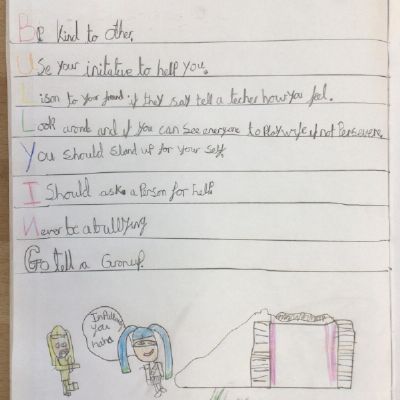 Be Kind to other.
Use your initative to help you.
Lison to your friend if they say tell a techer how you feel.
Look aronde and if you can see everyone to Play wife if not Persevere.
You should stand up for your self.
I Should ask a Person for help
Never be a bullying
Go tell a Gronup.
you